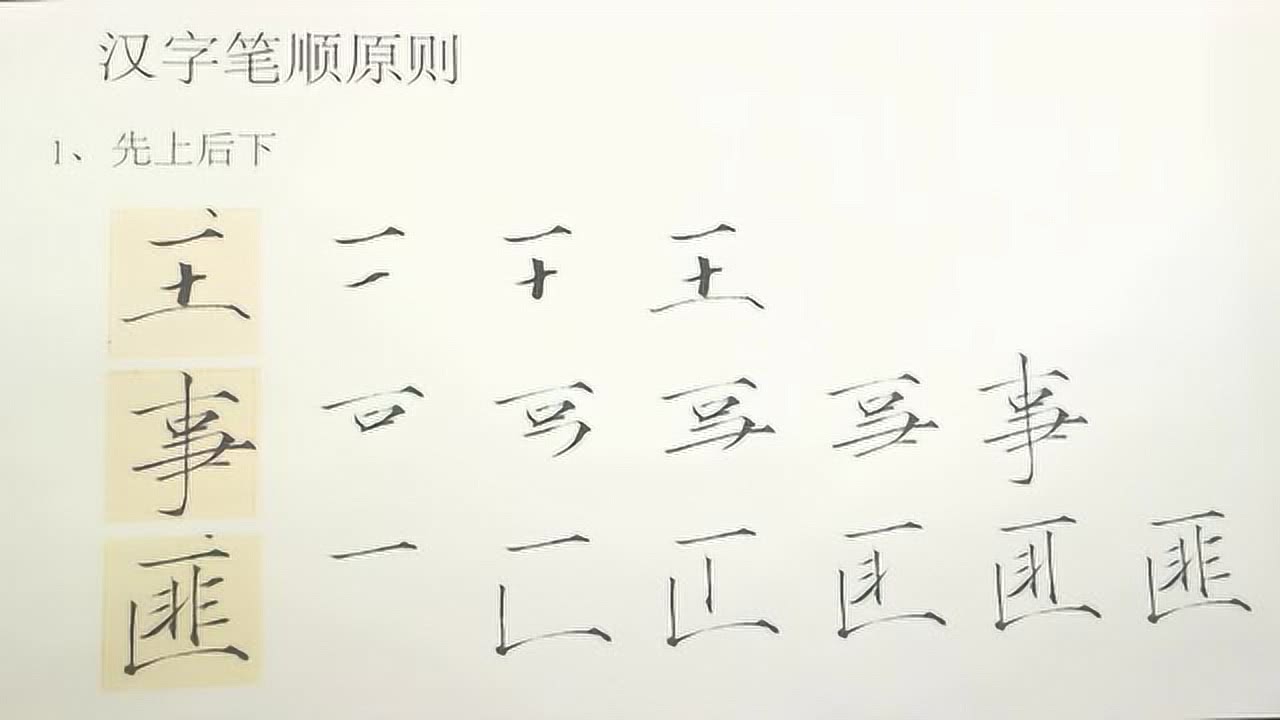 汉字笔顺原则
1、先上后下
主 二 王
事 事
匪 一 匚 匪